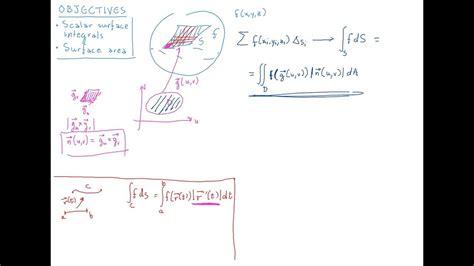 OBJECTIVES
• Scalar surface
integrals
• Surface area
S
g⃗(u,v)
v
u
D
f(x,y,z)
∑ f(xᵢ,yᵢ,zᵢ) ΔSᵢ → ∫_S f dS =
= ∬_D f(g⃗(u,v)) |n⃗(u,v)| dA
g⃗ᵥ
g⃗ᵤ
|g⃗ᵤ × g⃗ᵥ|
n⃗(u,v) = g⃗ᵤ × g⃗ᵥ
c
r⃗(t)
a b
∫_C f ds = ∫_a^b f(r⃗(t)) |r⃗'(t)| dt